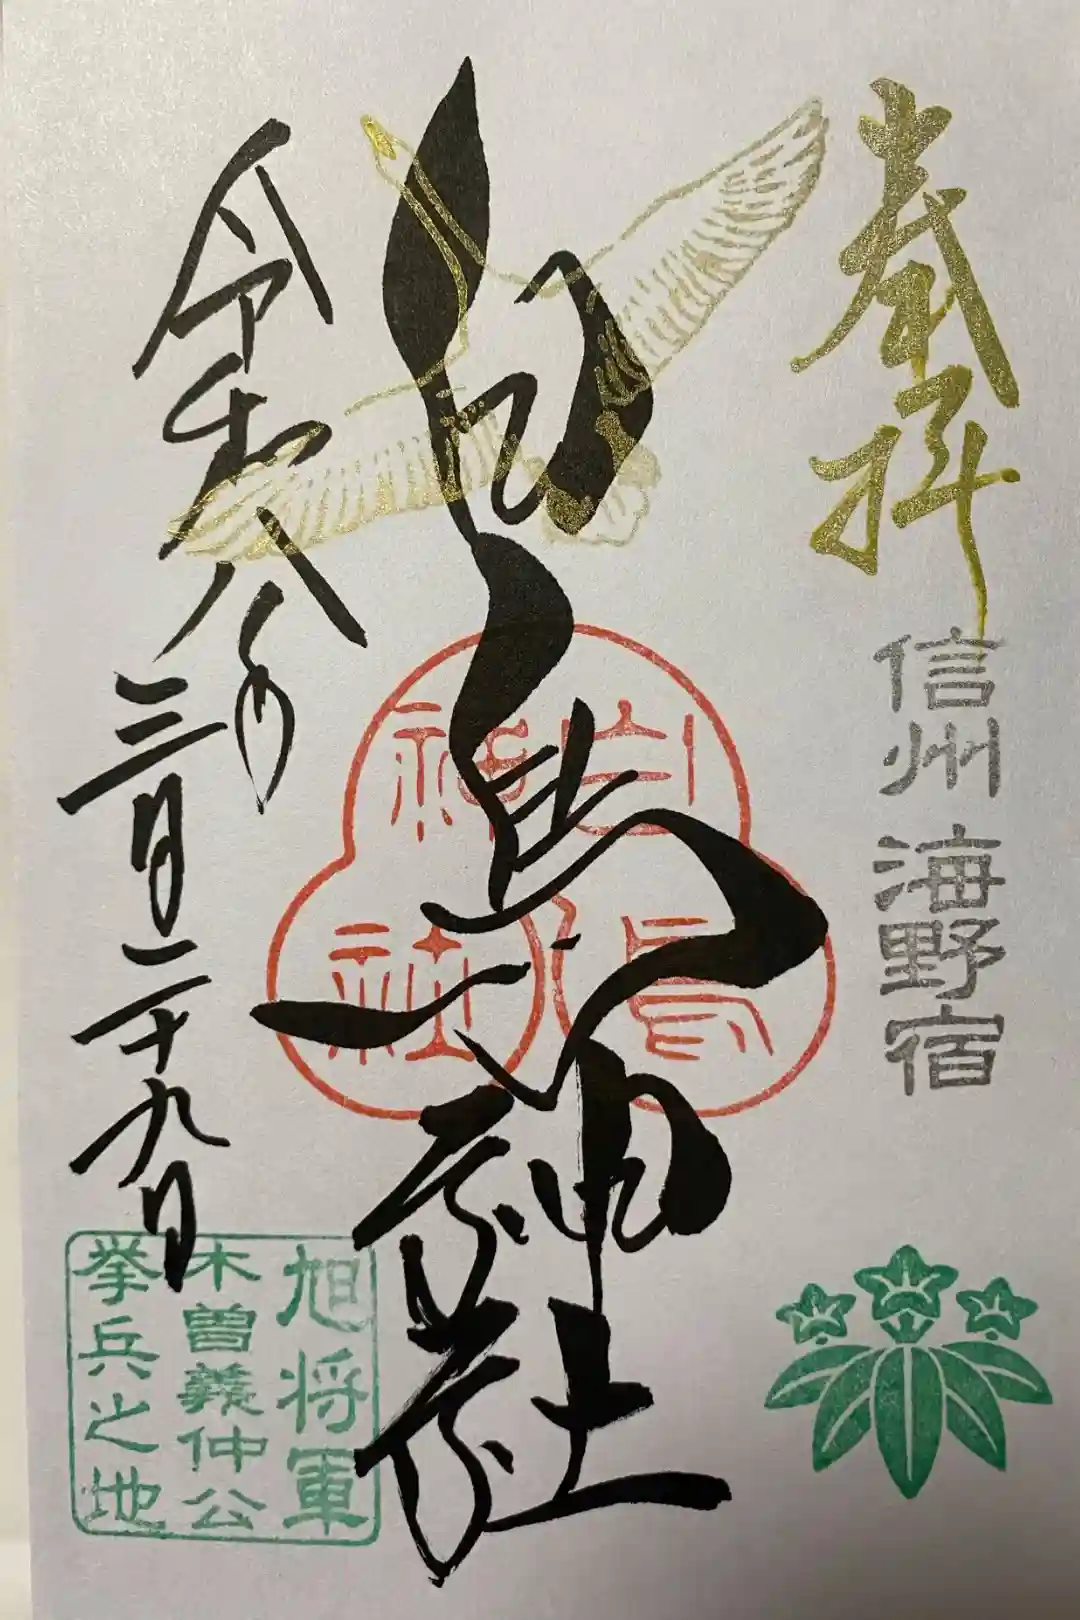 奉拝
信州 海野宿
白鳥神社
白鳥
神社
令和八年
三月二十九日
旭将軍
木曽義仲公
挙兵之地